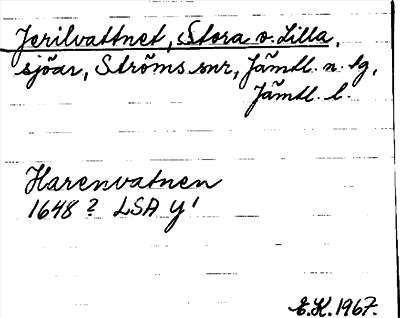 Jerilvattnet, Stora o. Lilla,
sjöar, Ströms snr, Jämtl. n. tg,
Jämtl. l.
Harenvatnen
1648 ? LSA Y¹
E.K. 1967.